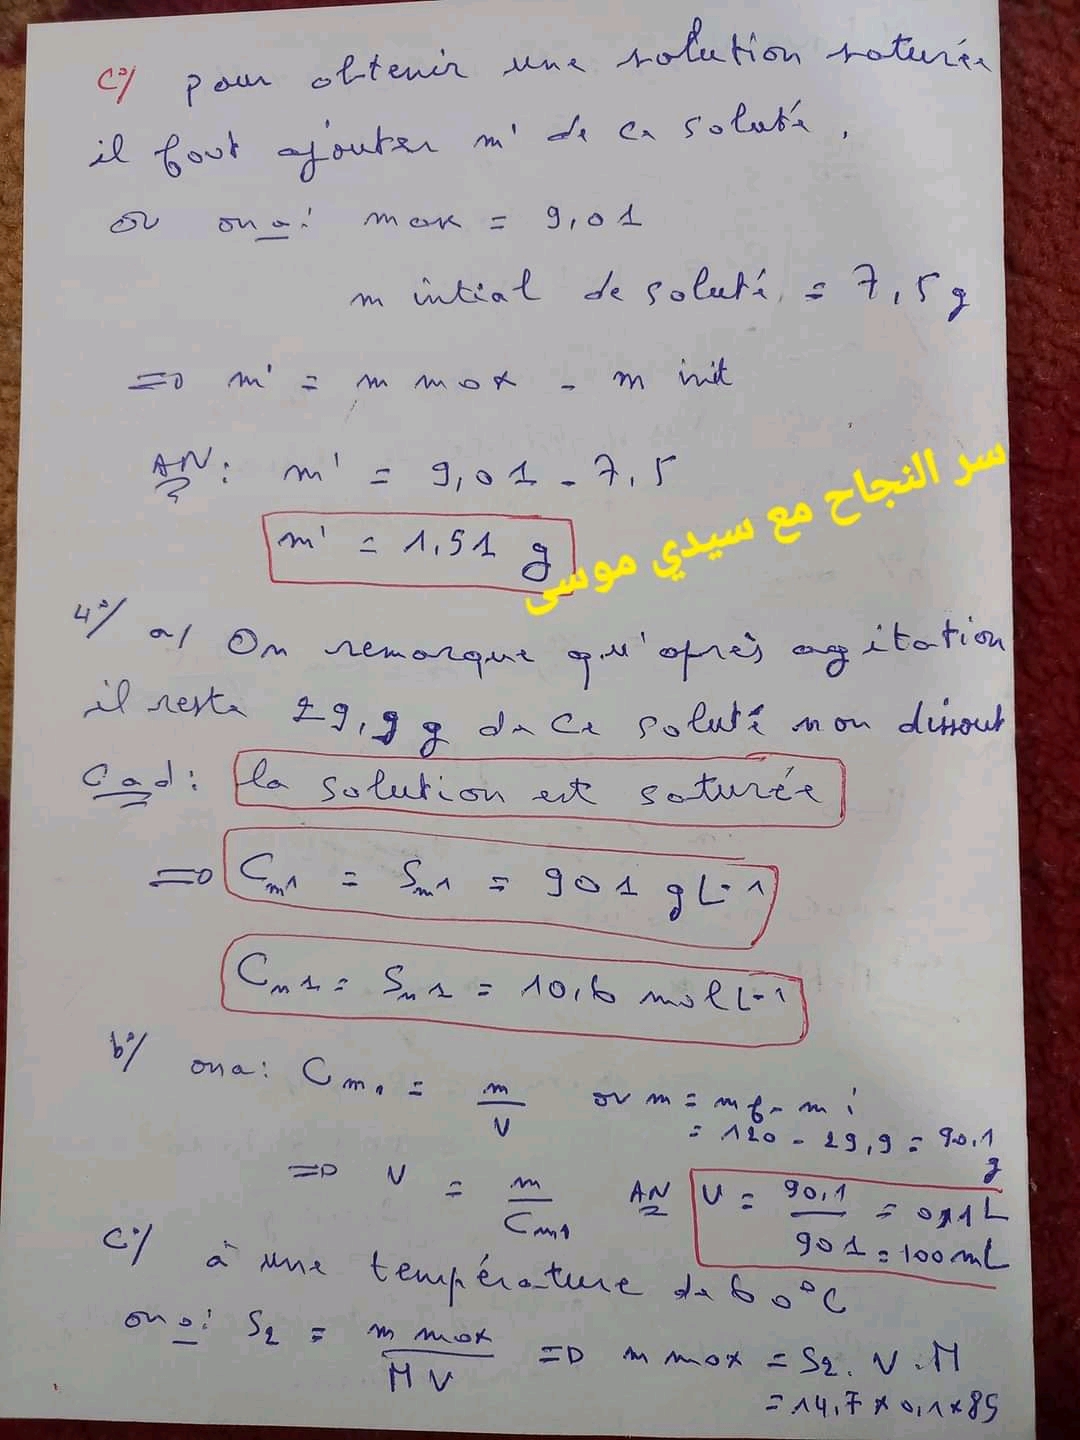 c°/ pour obtenir une solution saturée
il faut ajouter m' de ce soluté,
or on a: max = 9,01
m intial de soluté = 7,5 g
=> m' = m max - m init
AN: m' = 9,01 - 7,5
m' = 1,51 g
سر النجاح مع سيدي موسى
4°/ a/ On remarque qu'après agitation
il reste 29,9 g de ce soluté non dissout
Cad: la solution est saturée
=> Cm1 = Sm1 = 901 gL-1
Cn1 = Sn1 = 10,6 mol L-1
b°/ on a: Cm1 = m/V or m = mf - mi
= 120 - 29,9 = 90,1 g
=> V = m/Cm1 AN V = 90,1/901 = 0,1 L
= 100 mL
C°/ à une température de 60°C
on a: S2 = m max/MV => m max = S2. V. M
= 14,7 x 0,1 x 85